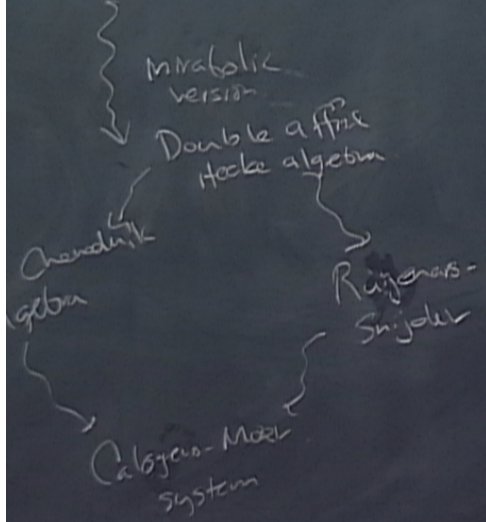 Mirabolic
version
Double affine
Hecke algebra
Cherednik
lgebra
Ruijenaars-
Snijder
Calogero-Moser
system